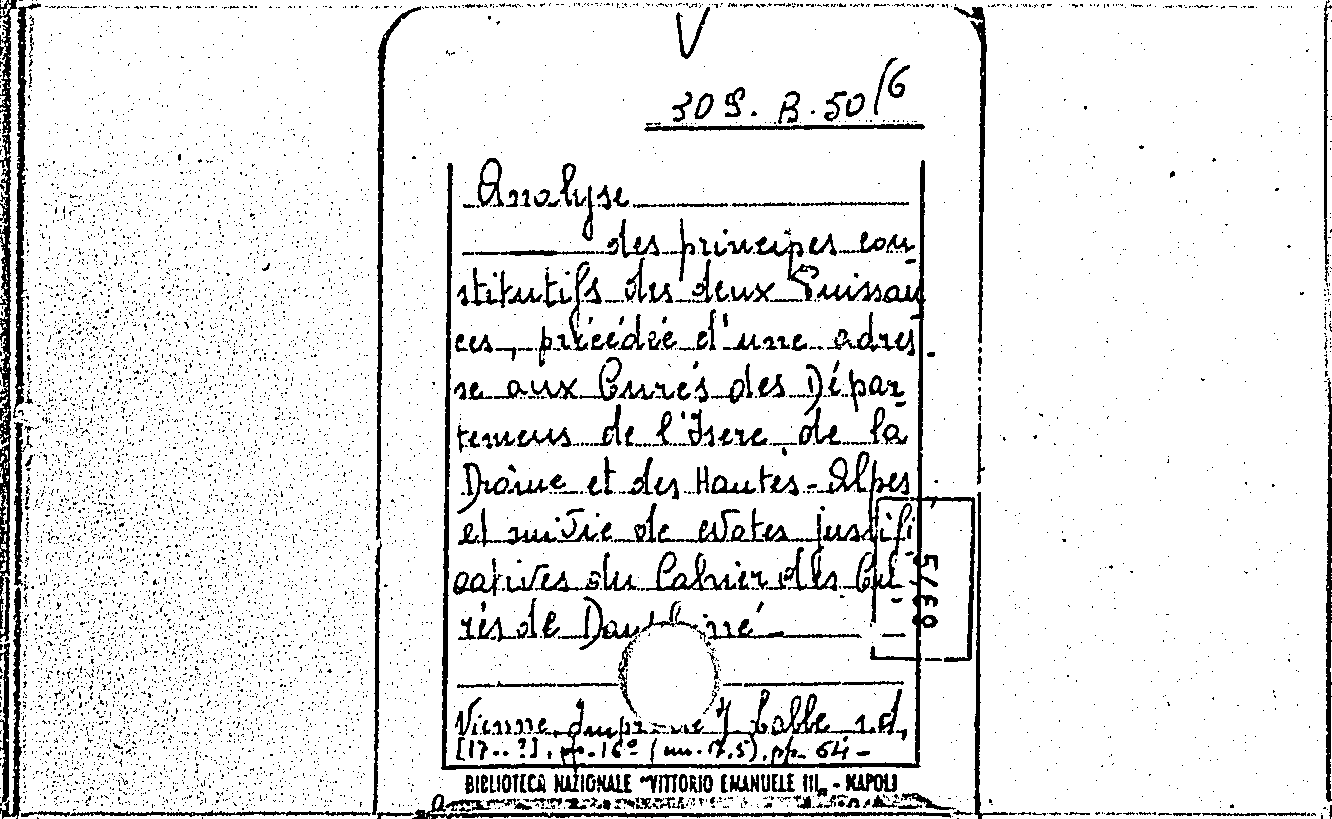 V
309. B. 50/6
Analyse
des principes con-
stitutifs des deux Puissan
ces, précédée d'une adres
se aux Curés des Dépar-
temens de l'Isere de la
Drôme et des Hautes-Alpes
et suivie de Notes justifi
catives du Cahier des Cu-
rés de Dauphiné
Vienne, J. Labbe s.d,
[17..?], pp. 16° (mm. 17,5), pp. 64-
BIBLIOTECA NAZIONALE "VITTORIO EMANUELE III„ - NAPOLI